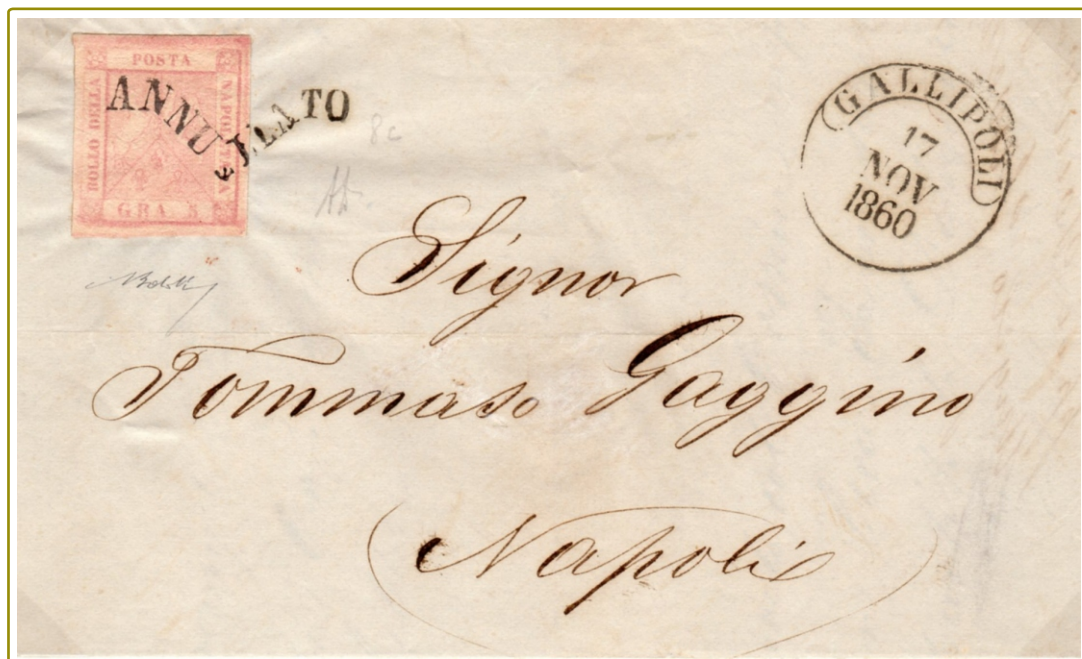 POSTA
BOLLO DELLA
NAPOLETANA
GRA 5
ANNULLATO
8c
GALLIPOLI
17
NOV
1860
Signor
Tommaso Gaggino
Napoli